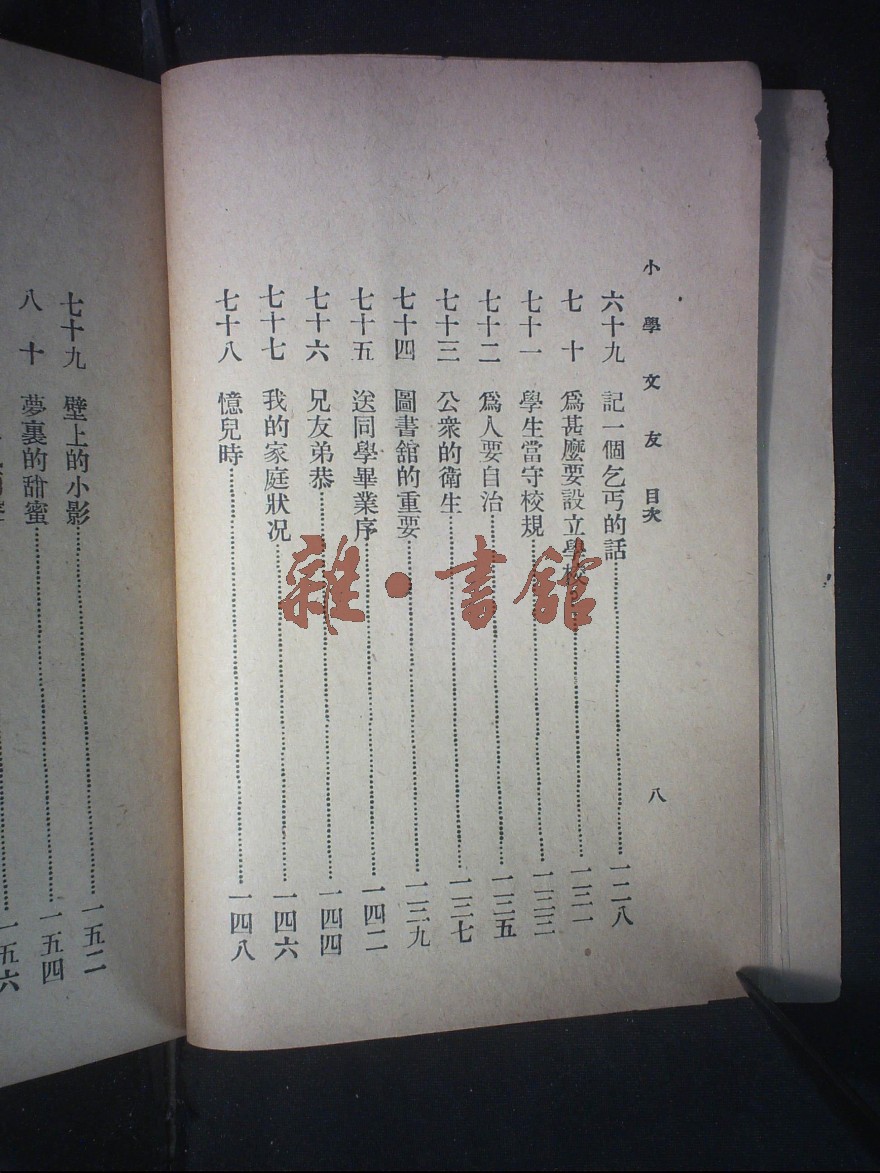 小學文友 目次 八
六十九 記一個乞丐的話 一二八
七十 爲甚麼要設立學校 一三一
七十一 學生當守校規 一三三
七十二 爲人要自治 一三五
七十三 公衆的衛生 一三七
七十四 圖書舘的重要 一三九
七十五 送同學畢業序 一四二
七十六 兄友弟恭 一四四
七十七 我的家庭狀况 一四六
七十八 憶兒時 一四八
七十九 壁上的小影 一五二
八十 夢裏的甜蜜 一五四
一五六
雜·書館